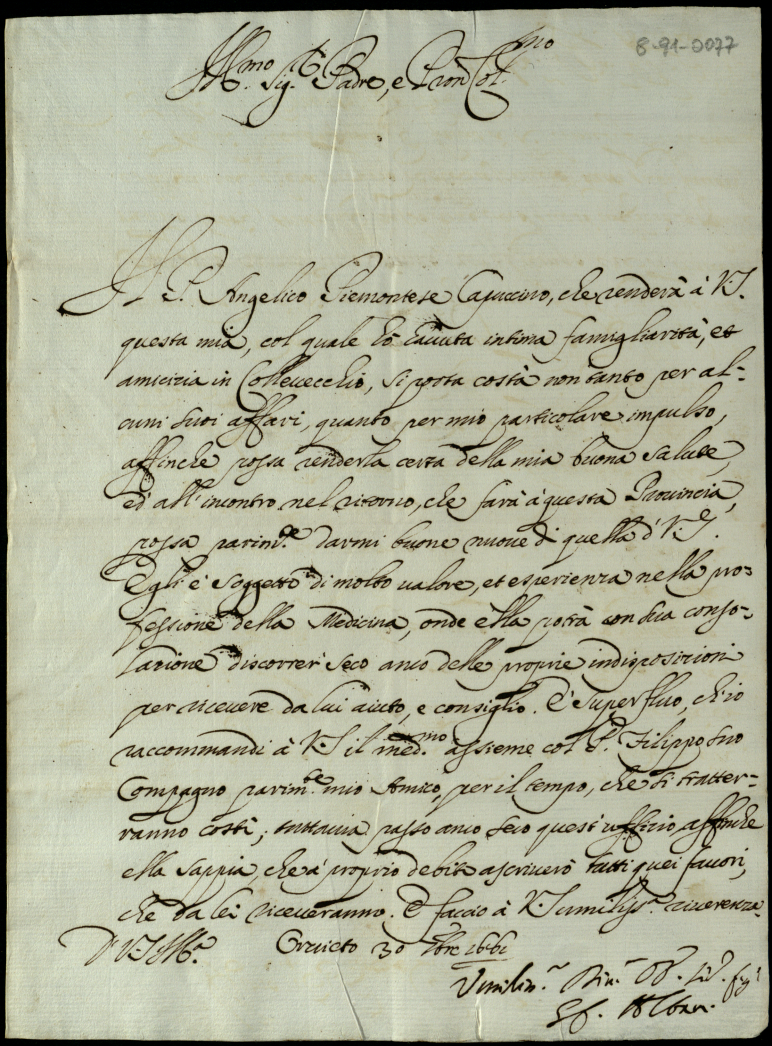 8-91-0077
Ill.mo Sig.r Padre, e Pron Col.mo
Il P. Angelico Piemontese Capuccino, che renderà à V.S.
questa mia, col quale hò hauuta intima famigliarità, et
amicizia in Colleuecchio, si porta costà non tanto per al=
cuni suoi affari, quanto per mio particolare impulso,
affinche possa renderla certa della mia buona salute,
ed all'incontro nel ritorno, che farà à questa Prouincia,
possa parim.te darmi buone nuoue di quella d'V.S.
Egli è soggetto di molto ualore, et esperienza nella pro=
fessione della Medicina, onde ella potrà con sua conso=
lazione discorrer seco anco delle proprie indisposizioni
per riceuere da lui aiuto, e consiglio. È superfluo, ch'io
raccommandi à V.S. il med.mo assieme col P. Filippo suo
Compagno parim.te mio Amico, per il tempo, che si tratter=
ranno costì; tuttauia passo anco seco quest'uffizio, affinche
ella sappia, che à proprio debito ascriuerò tutti quei fauori,
che da lei riceueranno. E faccio à V.S. umiliss.a riuerenza
D V.S. Ill.ma Oruieto 30 1661
Umiliss.